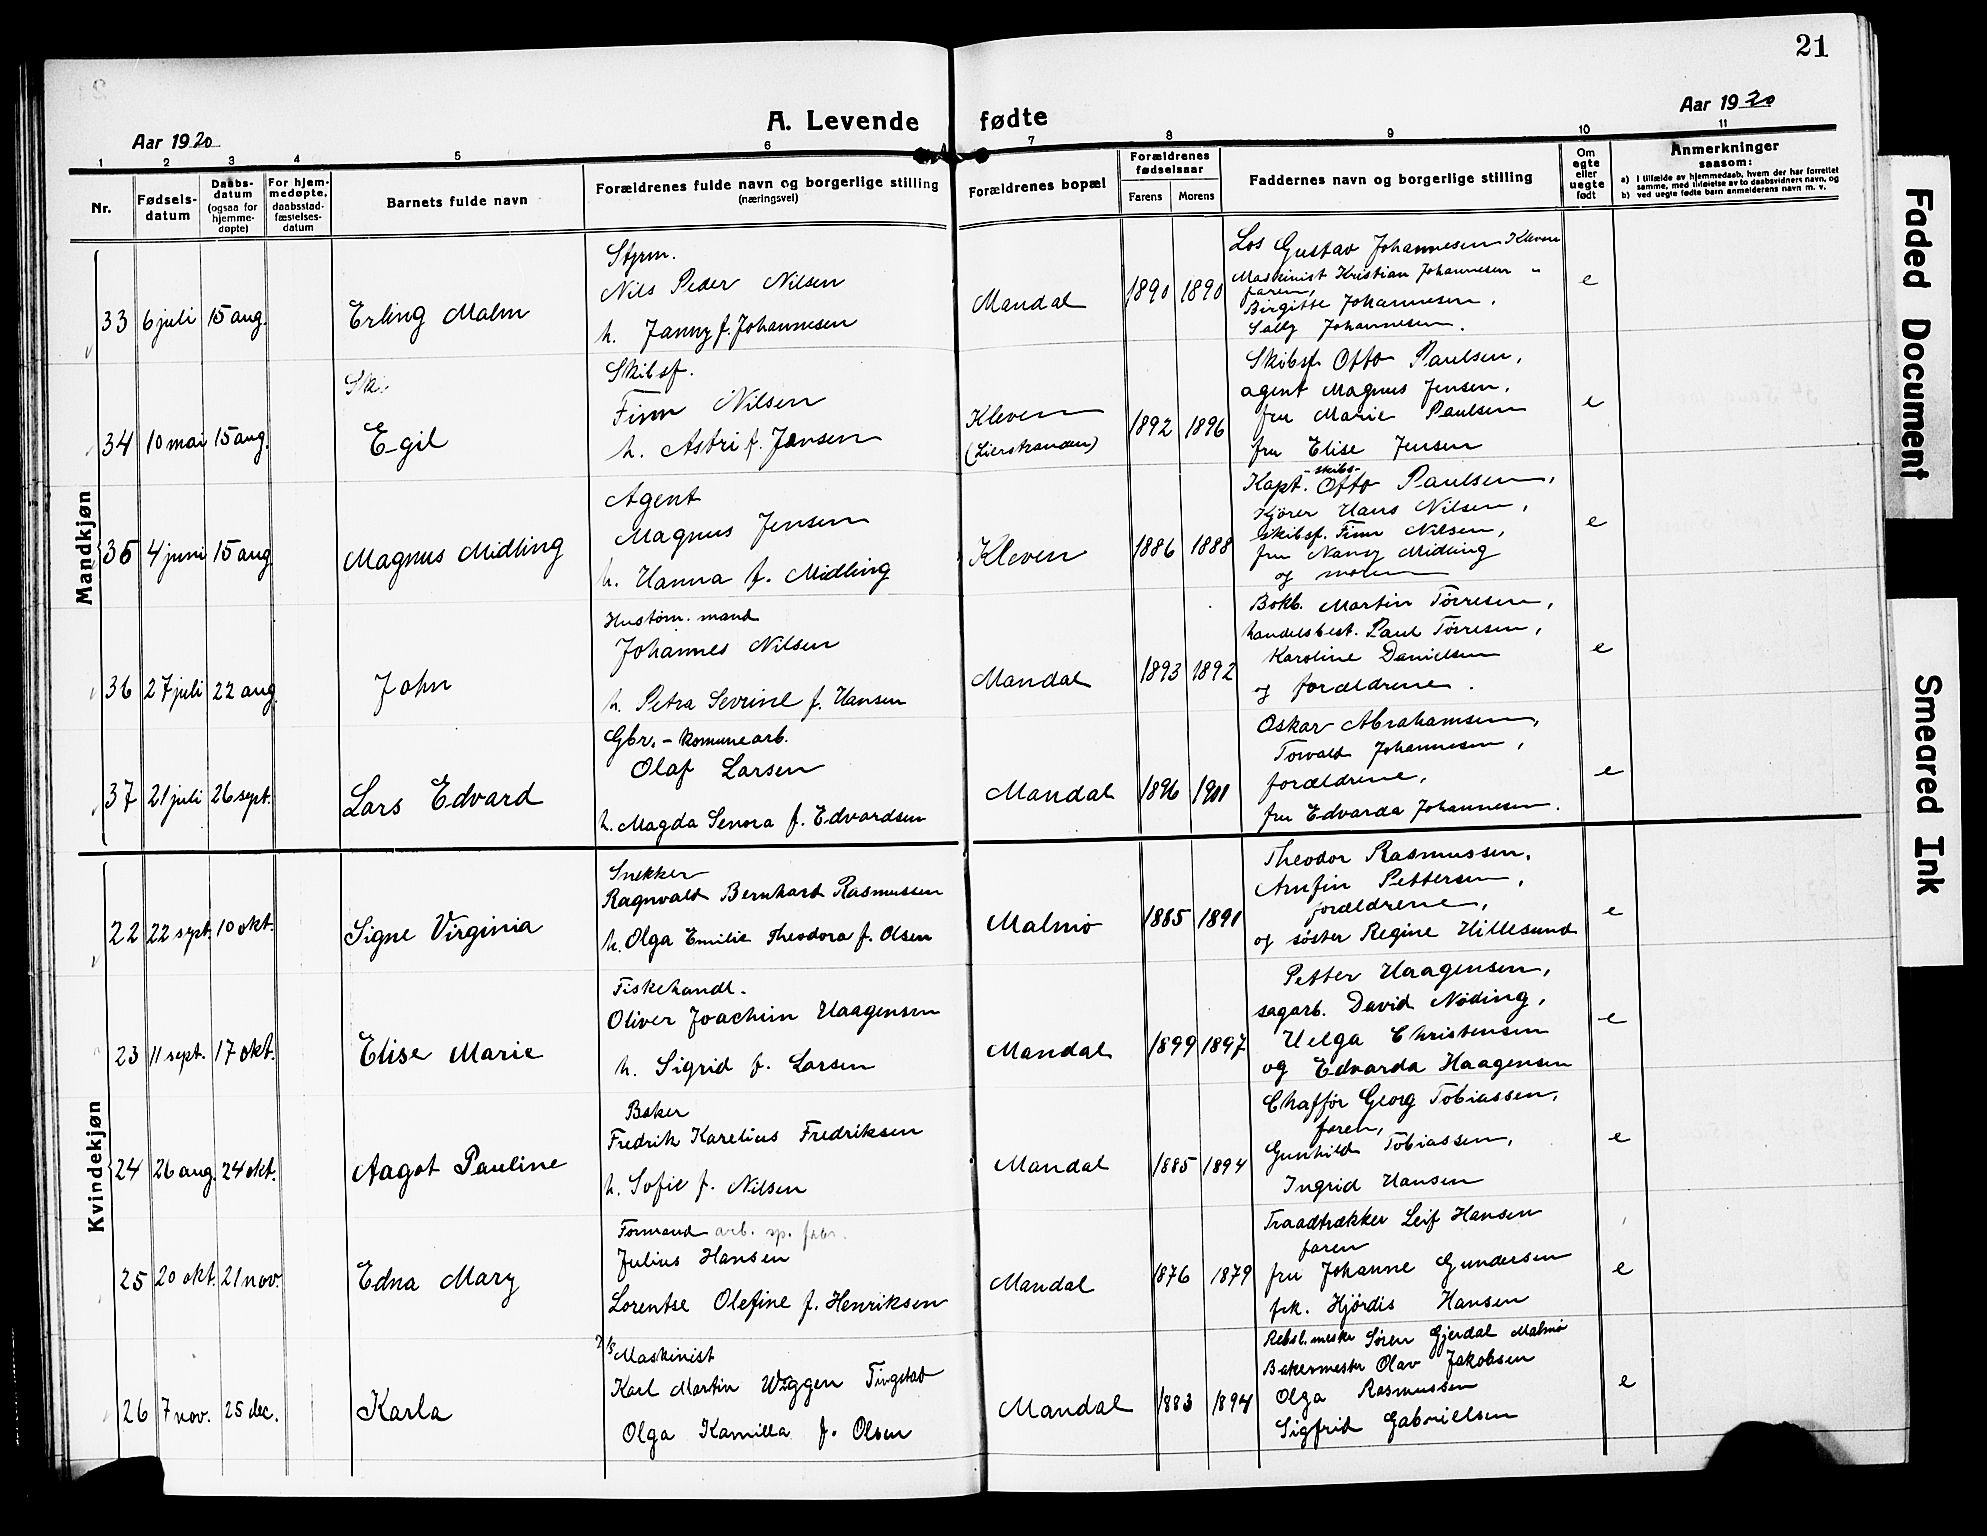 21
A. Levende fødte
Aar 1920
Aar 1920
1 2 3 4 5 6 7 8 9 10 11
Nr.
Fødsels-
datum
Daabs-
datum
(ogsaa for
hjemme-
døpte)
For hjem-
medøpte,
daabsstad-
fæstelses-
datum
Barnets fulde navn
Forældrenes fulde navn og borgerlige stilling
(næringsvei)
Forældrenes bopæl
Forældrenes
fødselsaar
Farens Morens
Faddernes navn og borgerlige stilling
Om
egte
eller
uegte
født
Anmerkninger
saasom:
a) I tilfælde av hjemmedaab, hvem der har forrettet
samme, med tilføielse av to daabsvidners navn, og
b) ved uegte fødte barn anmelderens navn m. v.
Mandkjøn
33 6 juli 15 aug. Erling Malm
Styrm.
Nils Peder Nilsen
h. Janny f. Johannesen
Mandal 1890 1890
Los Gustav Johannesen Kleven
Maskinist Kristian Johannesen "
faren,
Birgitte Johannesen,
Sally Johannesen.
e
Ski.
34 10 mai 15 aug. Egil
Skibsf.
Finn Nilsen
h. Astri f. Jensen
Kleven
(Lierstranden)
1892 1896
Skibsf. Otto Paulsen,
agent Magnus Jensen,
fru Marie Paulsen
fru Elise Jensen
e
35 4 juni 15 aug Magnus Midling
Agent
Magnus Jensen
h. Hanna f. Midling
Kleven 1886 1888
-skibs-
Kapt. Otto Paulsen,
Kjører Hans Nilsen,
skibsf. Finn Nilsen,
fru Nancy Midling
og moren
e
36 27 juli 22 aug. John
Hustøm. mand
Johannes Nilsen
h. Petra Sevrine f. Hansen
Mandal 1893 1892
Bokb. Martin Tørresen,
handelsbest. Paul Tørresen,
Karoline Danielsen
og forældrene.
e
37 21 juli 26 sept. Lars Edvard
Gbr. - komunearb.
Olaf Larsen
h. Magda Senora f. Edvardsen
Mandal 1896 1901
Oskar Abrahamsen,
Torvald Johannesen,
forældrene,
fru Edvarda Johannesen.
e
Kvindekjøn
22 22 sept. 10 okt. Signe Virginia
Snekker
Ragnvald Bernhard Rasmussen
h. Olga Emilie Theodora f. Olsen
Malmø 1885 1891
Theodor Rasmussen,
Arnfin Pettersen,
forældrene,
og søster Regine Hillesund
e
23 11 sept. 17 okt. Elise Marie
Fiskehandl.
Oliver Joachim Haagensen
h. Sigrid f. Larsen
Mandal 1899 1897
Petter Haagensen,
sagarb. David Nøding,
Helga Christensen
og Edvarda Haagensen
e
24 26 aug. 24 okt. Aagot Pauline
Baker
Fredrik Karelius Fredriksen
h. Sofie f. Nilsen
Mandal 1885 1894
Chaffør Georg Tobiassen,
faren,
Gunhild Tobiassen,
Ingrid Hansen
e
25 20 okt. 21 nov. Edna Mary
Formand arb. sp. fabr.
Julius Hansen
Lorentse Olefine f. Henriksen
Mandal 1876 1879
Traadtrækker Leif Hansen
faren
fru Johanne Gundersen
frk. Hjørdis Hansen
e
26 7 nov. 25 dec. Karla
Maskinist
Karl Martin Wiggen Tingstad
Olga Kamilla f. Olsen
Mandal 1883 1894
Rebsl.mester Søren Gjerdal Malmø
Bakermester Olav Jakobsen
Olga Rasmussen
Sigfrid Gabrielsen
e
Faded Document
Smeared Ink